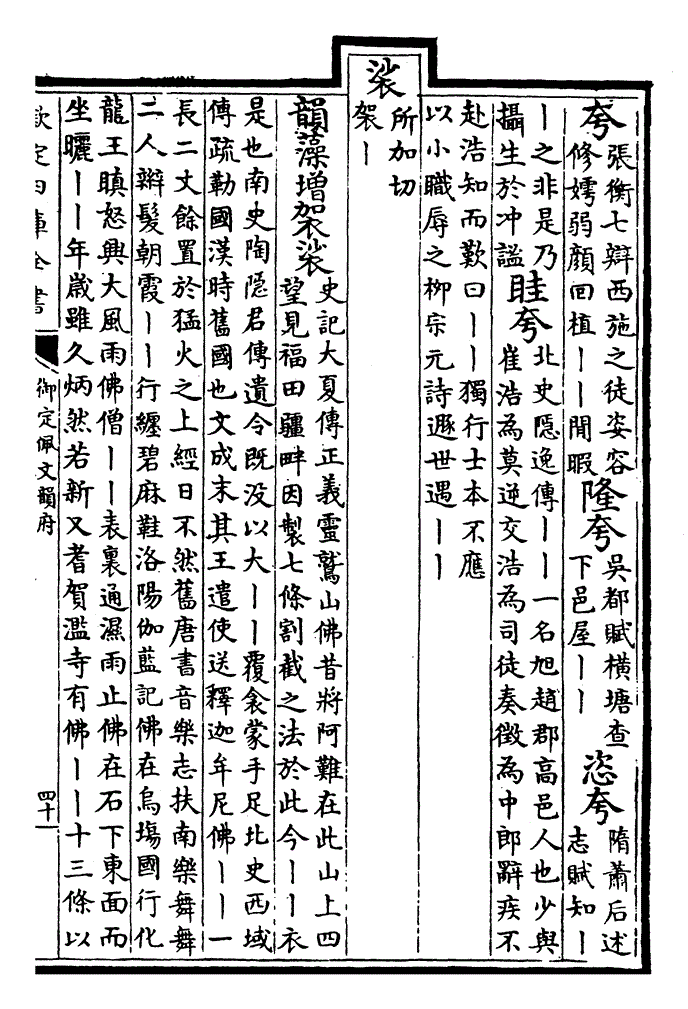 夸
張衡七辯西施之徒姿容
修嫮弱顔回植丨丨閒暇
隆夸
吳都賦橫塘查
下邑屋丨丨
恣夸
隋蕭后述
志賦知丨
丨之非是乃
攝生於沖謐
眭夸
北史隱逸傳丨丨一名旭趙郡高邑人也少與
崔浩為莫逆交浩為司徒奏徵為中郎辭疾不
赴浩知而歎曰丨丨獨行士本不應
以小職辱之柳宗元詩遯世遇丨丨
裟
所加切
袈丨
韻藻增袈裟
史記大夏傳正義靈鷲山佛昔將阿難在此山上四
望見福田疆畔因製七條割截之法於此今丨丨衣
是也南史陶隱君傳遺令既没以大丨丨覆衾蒙手足北史西域
傳疏勒國漢時舊國也文成末其王遣使送釋迦牟尼佛丨丨一
長二丈餘置於猛火之上經日不然舊唐書音樂志扶南樂舞舞
二人辮髮朝霞丨丨行纏碧麻鞋洛陽伽藍記佛在烏塲國行化
龍王瞋怒興大風雨佛僧丨丨表裏通濕雨止佛在石下東面而
坐曬丨丨年嵗雖久炳然若新又耆賀濫寺有佛丨丨十三條以
欽定四庫全書
御定佩文韻府
四十